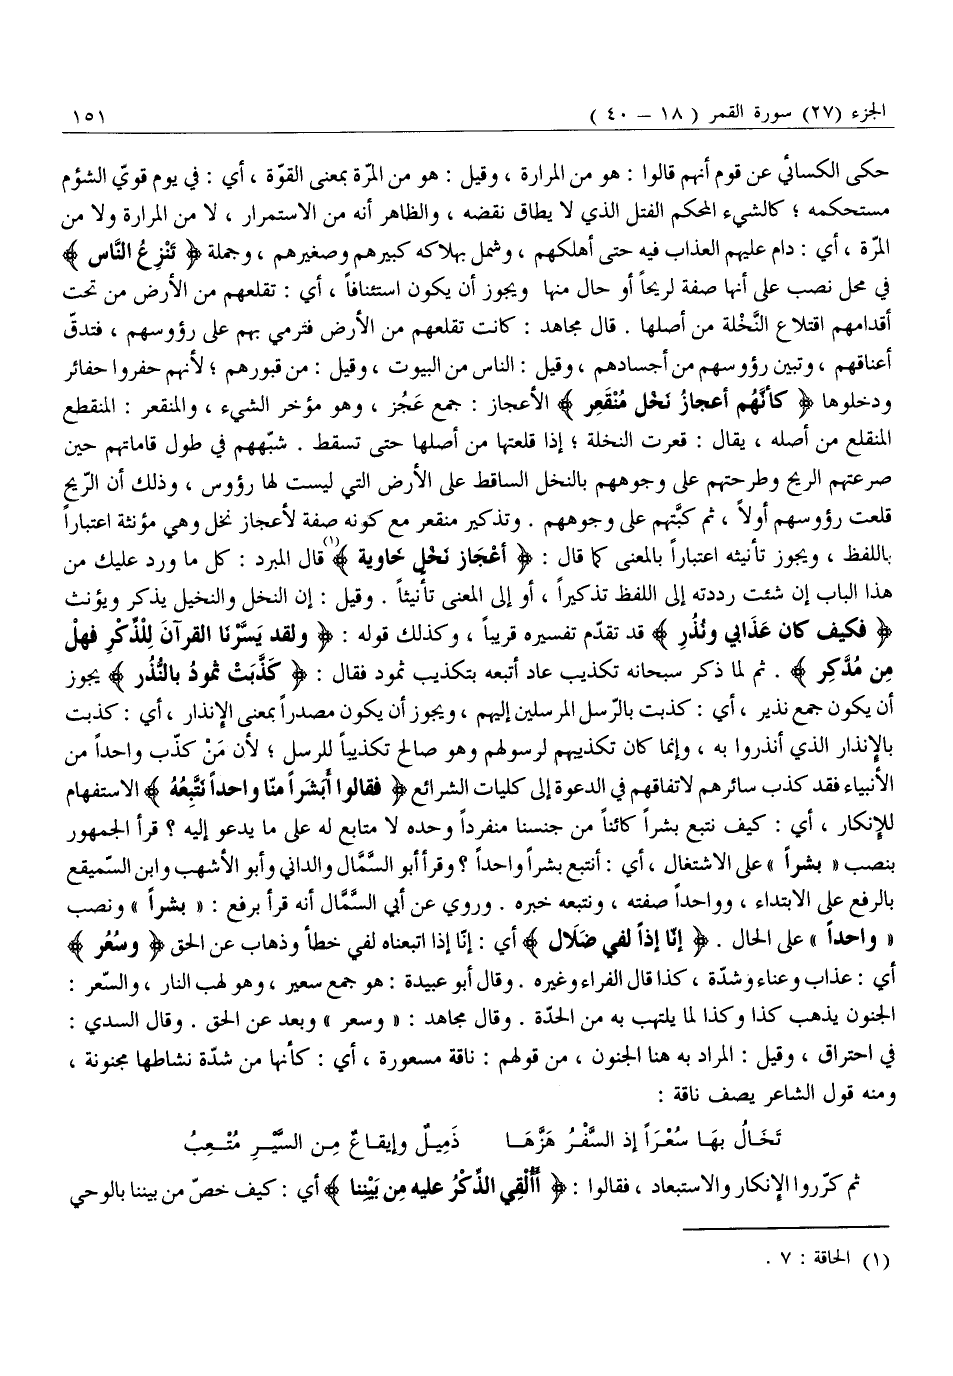 الجزء (٢٧) سورة القمر ( ١٨ - ٤٠ ) ١٥١
حكى الكسائي عن قوم أنهم قالوا : هو من المرارة ، وقيل : هو من المرّة بمعنى القوّة ، أي : في يوم قويّ الشؤم
مستحكمه ؛ كالشيء المحكم الفتل الذي لا يطاق نقضه ، والظاهر أنه من الاستمرار ، لا من المرارة ولا من
المرّة ، أي : دام عليهم العذاب فيه حتى أهلكهم ، وشمل بهلاكه كبيرهم وصغيرهم ، وجملة ﴿ تَنْزِعُ النَّاس ﴾
في محل نصب على أنها صفة لريحاً أو حال منها ويجوز أن يكون استئنافاً ، أي : تقلعهم من الأرض من تحت
أقدامهم اقتلاع النَّخْلة من أصلها . قال مجاهد : كانت تقلعهم من الأرض فترمي بهم على رؤوسهم ، فتدقّ
أعناقهم ، وتبين رؤوسهم من أجسادهم ، وقيل : الناس من البيوت ، وقيل : من قبورهم ؛ لأنهم حفروا حفائر
ودخلوها ﴿ كأنَّهُم أعجازُ نَخْل مُنْقَعِر ﴾ الأعجاز : جمع عَجُز ، وهو مؤخر الشيء ، والمنقعر : المنقطع
المنقلع من أصله ، يقال : قعرت النخلة ؛ إذا قلعتها من أصلها حتى تسقط . شبّههم في طول قاماتهم حين
صرعتهم الريح وطرحتهم على وجوههم بالنخل الساقط على الأرض التي ليست لها رؤوس ، وذلك أن الرّيح
قلعت رؤوسهم أولاً ، ثم كبَّتهم على وجوههم . وتذكير منقعر مع كونه صفة لأعجاز نخل وهي مؤنثة اعتباراً
باللفظ ، ويجوز تأنيثه اعتباراً بالمعنى كما قال : ﴿ أعْجَاز نَخْلٍ خَاوية ﴾(١) قال المبرد : كل ما ورد عليك من
هذا الباب إن شئت رددته إلى اللفظ تذكيراً ، أو إلى المعنى تأنيثاً . وقيل : إن النخل والنخيل يذكر ويؤنث
﴿ فكيف كان عَذَابي ونُذُرِ ﴾ قد تقدّم تفسيره قريباً ، وكذلك قوله : ﴿ ولقد يَسَّرْنَا القرآنَ لِلْذِّكْرِ فهلْ
مِن مُدَّكِر ﴾ . ثم لما ذكر سبحانه تكذيب عاد أتبعه بتكذيب ثمود فقال : ﴿ كَذَّبَتْ ثمودُ بالنُّذُر ﴾ يجوز
أن يكون جمع نذير ، أي : كذبت بالرّسل المرسلين إليهم ، ويجوز أن يكون مصدراً بمعنى الإنذار ، أي : كذبت
بالإنذار الذي أنذروا به ، وإنما كان تكذيبهم لرسولهم وهو صالح تكذيباً للرسل ؛ لأن مَنْ كذّب واحداً من
الأنبياء فقد كذب سائرهم لاتفاقهم في الدعوة إلى كليات الشرائع ﴿ فقالوا أَبَشَراً منّا واحداً نَتَّبِعُهُ ﴾ الاستفهام
للإنكار ، أي : كيف نتبع بشراً كائناً من جنسنا منفرداً وحده لا متابع له على ما يدعو إليه ؟ قرأ الجمهور
بنصب « بشراً » على الاشتغال ، أي : أنتبع بشراً واحداً ؟ وقرأ أبو السَّمَّال والداني وأبو الأشهب وابن السّميقع
بالرفع على الابتداء ، وواحداً صفته ، ونتبعه خبره . وروي عن أبي السَّمَّال أنه قرأ برفع : « بشراً » ونصب
« واحداً » على الحال . ﴿ إنّا إذاً لفي ضَلَال ﴾ أي : إنّا إذا اتبعناه لفي خطأ وذهاب عن الحق ﴿ وسُعُر ﴾
أي : عذاب وعناء وشدّة ، كذا قال الفراء وغيره . وقال أبو عبيدة : هو جمع سعير ، وهو لهب النار ، والسّعر :
الجنون يذهب كذا وكذا لما يلتهب به من الحدّة . وقال مجاهد : « وسعر » وبعد عن الحق . وقال السدي :
في احتراق ، وقيل : المراد به هنا الجنون ، من قولهم : ناقة مسعورة ، أي : كأنها من شدّة نشاطها مجنونة ،
ومنه قول الشاعر يصف ناقة :
تَخَالُ بهَا سُعْرَاً إذ السَّفْرُ هَزَّهَا ذَمِيلٌ وإيقاعٌ مِن السَّيْرِ مُتْعِبُ
ثم كرّروا الإنكار والاستبعاد ، فقالوا : ﴿ أَأُلْقِي الذِّكْرُ عليه مِن بَيْنِنا ﴾ أي : كيف خصّ من بيننا بالوحي
(١) الحاقة : ٧ .